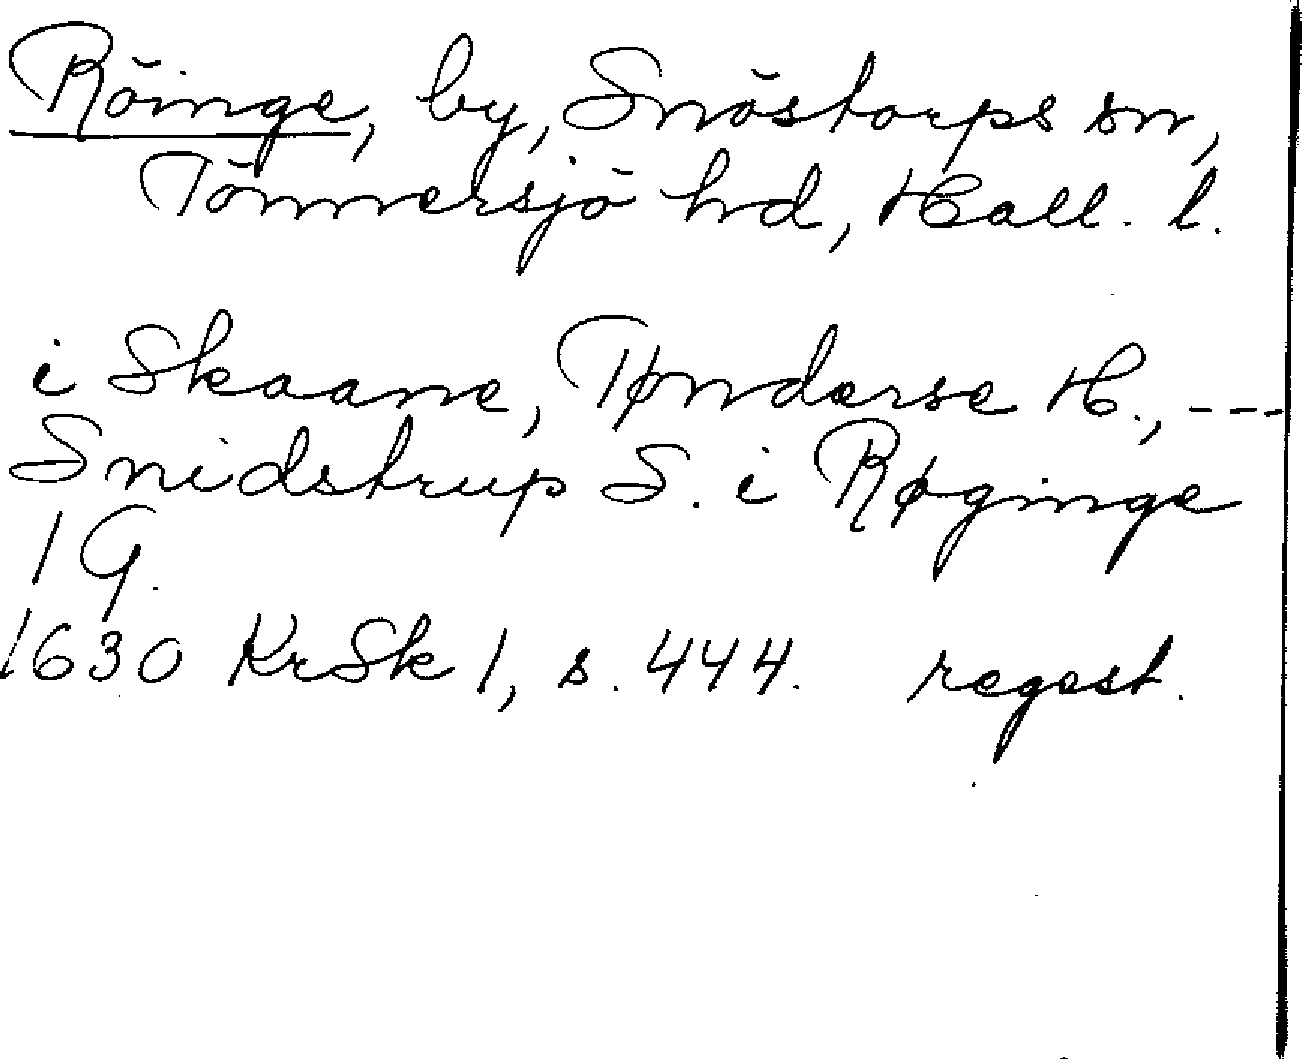 Röinge, by, Snöstorps sn,
Tönnersjö hd, Hall. l.
i Skaane, Tønderse H., ---
Snidstrup S. i Røginge
1 G.
1630 KrSk 1, s. 444. regest.